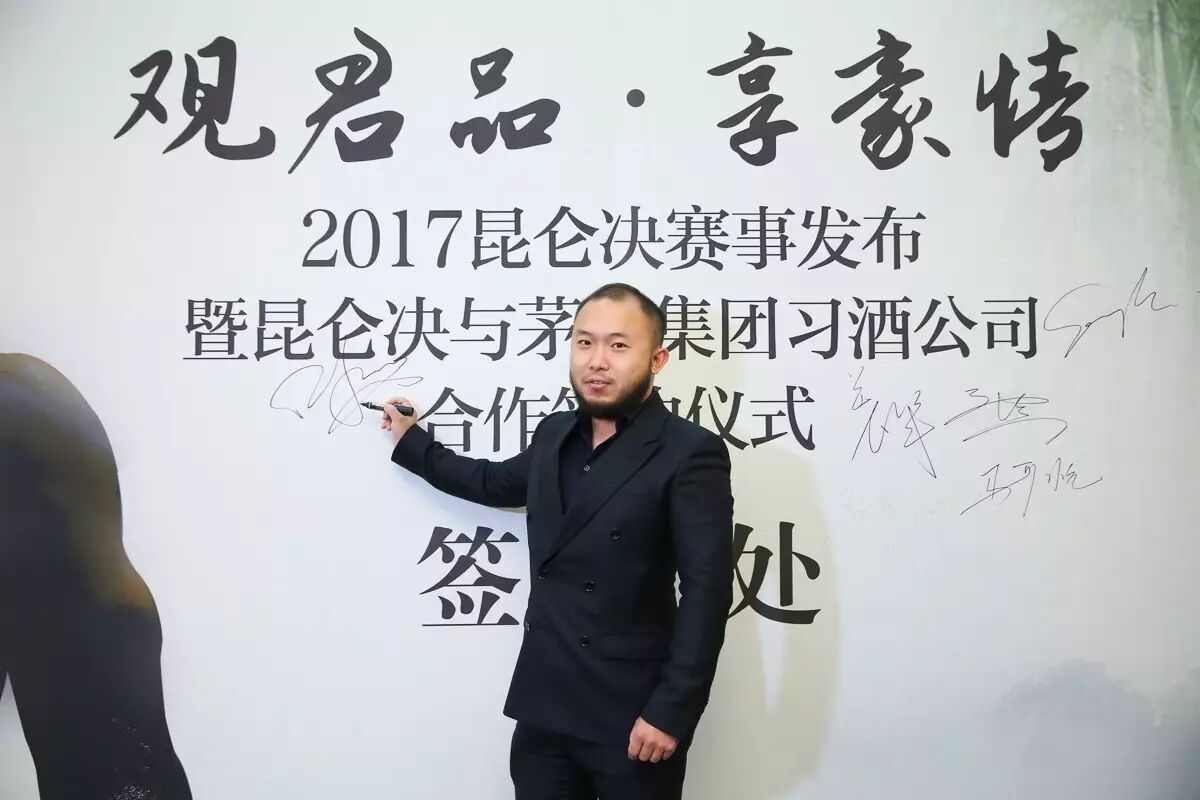 观君品·享豪情
2017昆仑决赛事发布
暨昆仑决与茅 集团习酒公司
合作签约仪式
签 处